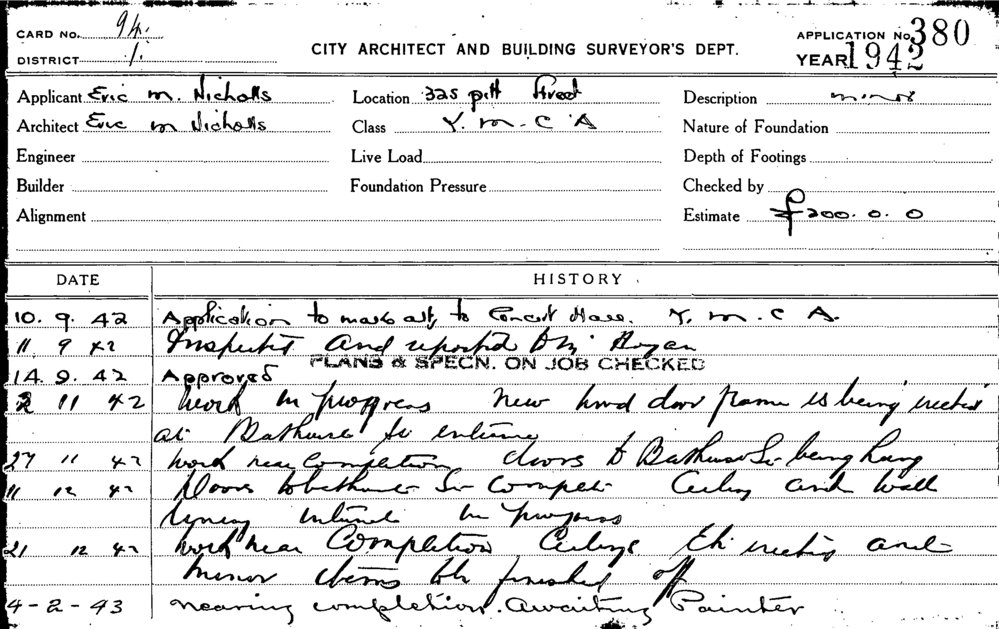 CARD No. 94.
DISTRICT 1.
CITY ARCHITECT AND BUILDING SURVEYOR'S DEPT.
APPLICATION No 380
YEAR 1942
Applicant Eric M. Nicholls
Location 325 pitt Street
Description minor
Architect Eric M Nicholls
Class Y. M. C A
Nature of Foundation
Engineer
Live Load
Depth of Footings
Builder
Foundation Pressure
Checked by
Alignment
Estimate £200. 0. 0
DATE HISTORY
10. 9. 42 Application to make alts to Concert Hall. Y. M. C A.
11 9 42 Inspected and reported
PLANS & SPECN. ON JOB CHECKED
14. 9. 42 Approved
2 11 42 Work in progress New door frame is being erected
at Bathurst St entrance
27 11 42 Work near Completion doors to Bathurst St being hung
11 12 42 Doors to Bathurst St complete Ceiling and wall
in progress
21 12 42 Work near Completion Ceilings erecting and
minor items to be finished off
4-2-43 nearing completion. Awaiting Painter